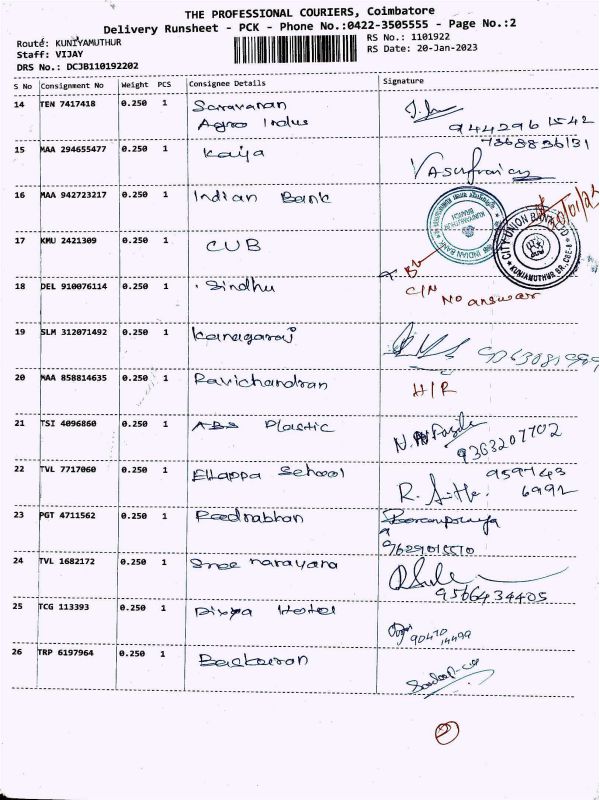 THE PROFESSIONAL COURIERS, Coimbatore
Delivery Runsheet - PCK - Phone No.:0422-3505555 - Page No.:2
Route: KUNIYAMUTHUR
Staff: VIJAY
DRS No.: DCJB110192202
RS No.: 1101922
RS Date: 20-Jan-2023
S No Consignment No Weight PCS Consignee Details Signature
14 TEN 7417418 0.250 1 Saravanan
Agro Indus
944296 1542
15 MAA 294655477 0.250 1 Kaija
7368836131
16 MAA 942723217 0.250 1 Indian Bank
INDIAN BANK
KUNIYAMUTHUR BRANCH
17 KMU 2421309 0.250 1 CUB
CITY UNION BANK LTD
KUNIAMUTHUR BR. CBE
18 DEL 910076114 0.250 1 Sindhu
C/N
No answar
19 SLM 312071492 0.250 1 Kanagaraj
20 MAA 858814635 0.250 1 Ravichandran H/R
21 TSI 4096860 0.250 1 ABS Plastic
9363207702
22 TVL 7717060 0.250 1 Ellappa School
959743
6992
23 PGT 4711562 0.250 1 Padnabhan
9629015510
24 TVL 1682172 0.250 1 Sree narayara
9566434405
25 TCG 113393 0.250 1 Divya Hotel
90470
14499
26 TRP 6197964 0.250 1 Baskaran
2